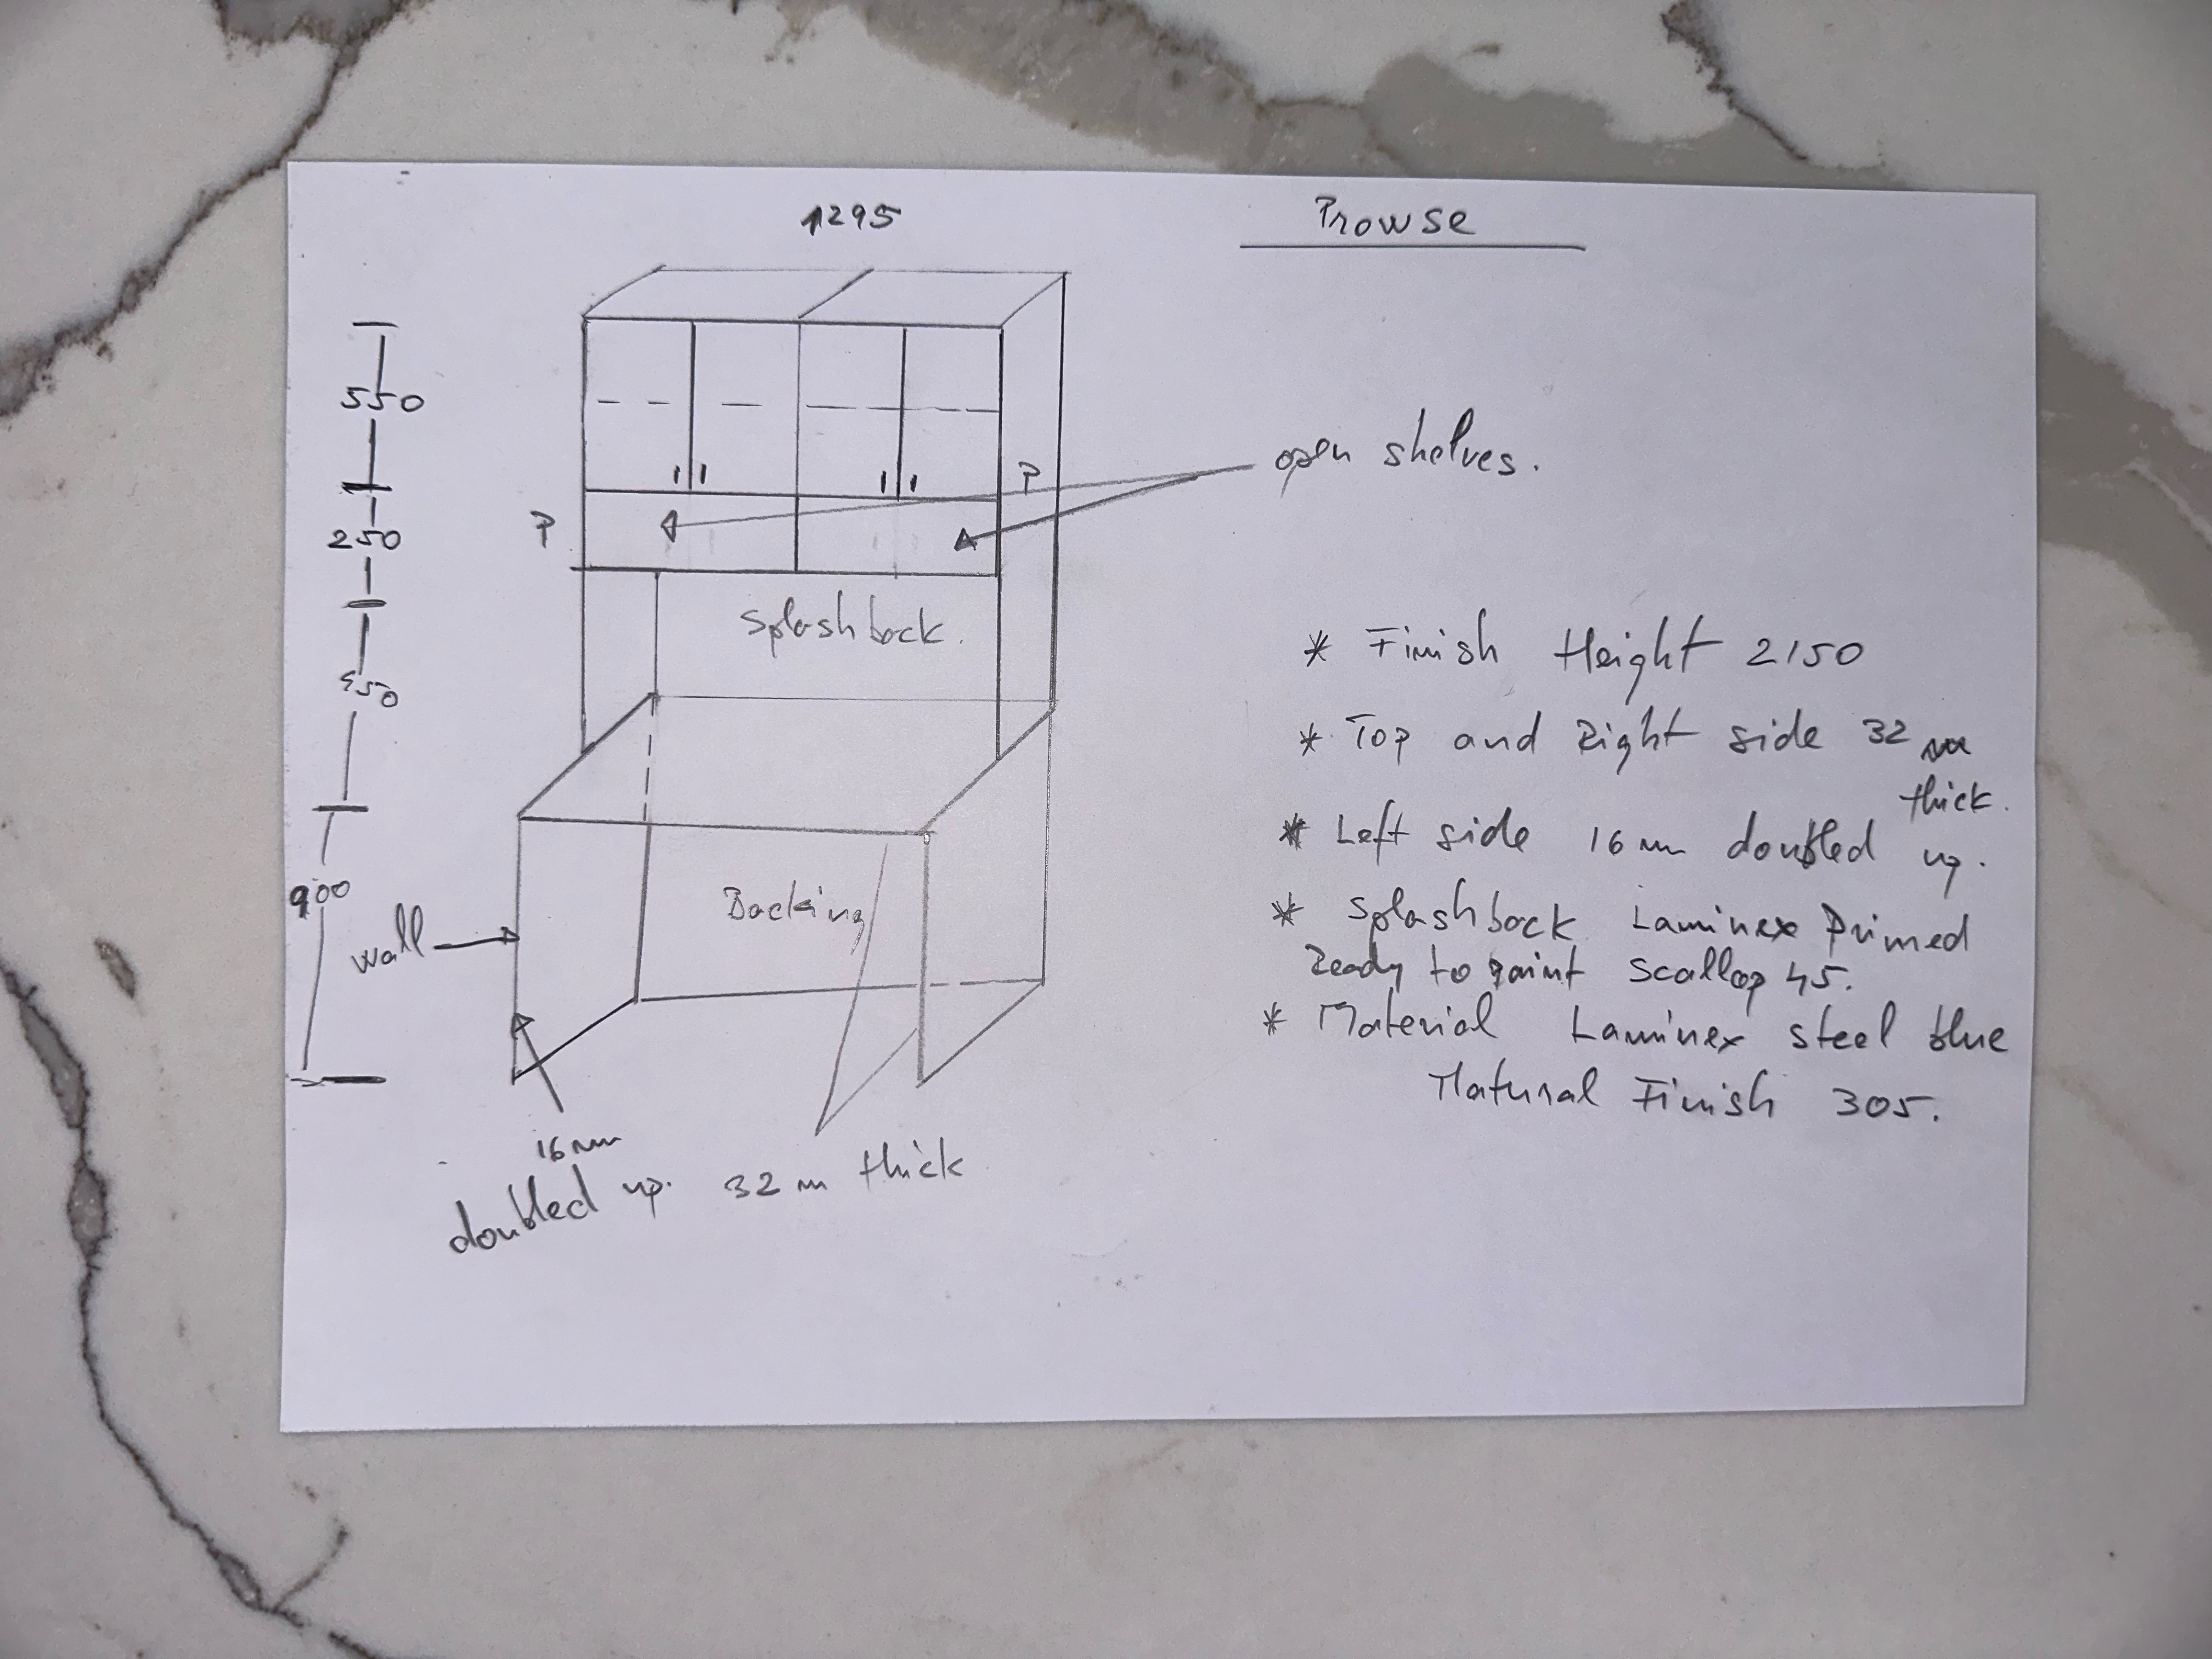 1295
Prowse
550
250
450
900
P
P
open shelves.
Splashback.
Backing
wall
16 mm
doubled up.
32 m thick
* Finish Height 2150
* Top and Right side 32 mm
thick.
* Left side 16 mm doubled up.
* Splashback Laminex Primed
Ready to paint Scallop 45.
* Material Laminex steel blue
Natural Finish 305.